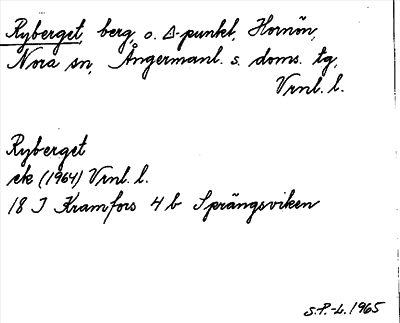 Ryberget, berg o. Δ-punkt, Hornön,
Nora sn, Ångermanl. s. doms. tg,
Vrnl. l.
Ryberget
ek (1964) Vrnl. l.
18 I Kramfors 4 b Sprängsviken
S.P.-L. 1965